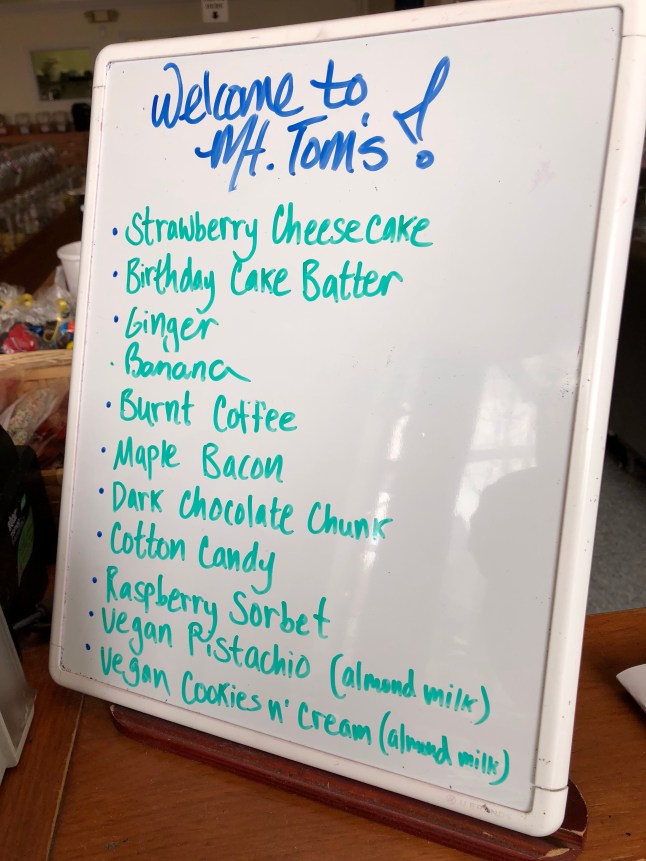 Welcome to
Mt. Tom's!
• Strawberry Cheesecake
• Birthday Cake Batter
• Ginger
• Banana
• Burnt Coffee
• Maple Bacon
• Dark Chocolate Chunk
• Cotton Candy
• Raspberry Sorbet
• Vegan Pistachio (almond milk)
• Vegan Cookies n' Cream (almond milk)